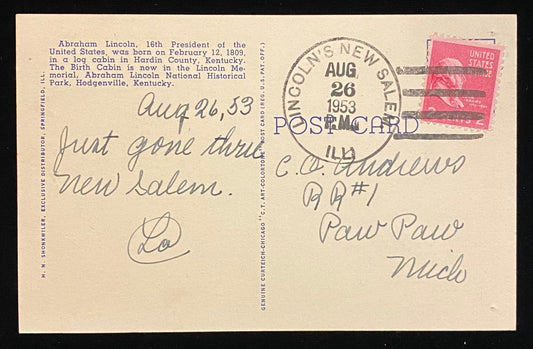 Abraham Lincoln, 16th President of the
United States, was born on February 12, 1809,
in a log cabin in Hardin County, Kentucky.
The Birth Cabin is now in the Lincoln Me-
morial, Abraham Lincoln National Historical
Park, Hodgenville, Kentucky.
Aug 26, 53
Just gone thru
New Salem.
Lo
H. N. SHONKWILER, EXCLUSIVE DISTRIBUTOR, SPRINGFIELD, ILL.
GENUINE CURTEICH-CHICAGO "C.T. ART-COLORTONE" POST CARD (REG. U.S. PAT. OFF.)
POST CARD
LINCOLN'S NEW SALEM
AUG
26
1953
P.M.
ILL.
UNITED
STATES
C. O. Andrews
RR #1
Paw Paw
Mich